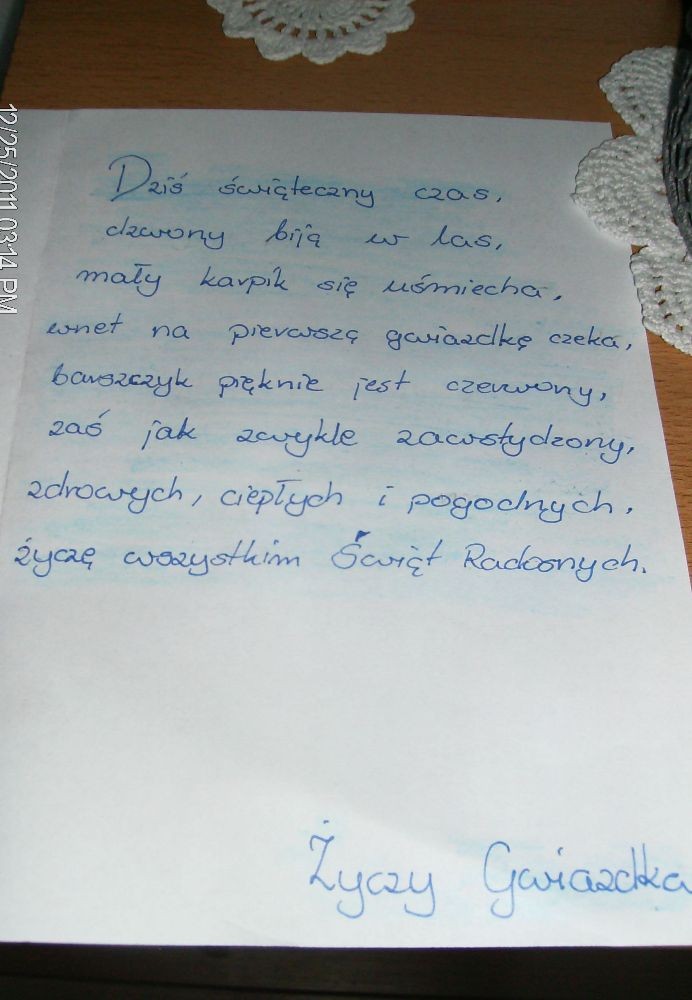 12/25/2011 03:14 PM
Dziś świąteczny czas,
dzwony biją w las,
mały karpik się uśmiecha,
wnet na pierwszą gwiazdkę czeka,
barszczyk pięknie jest czerwony,
zaś jak zwykle zawstydzony,
zdrowych, ciepłych i pogodnych,
życzę wszystkim Świąt Radosnych.
Życzy Gwiazdka